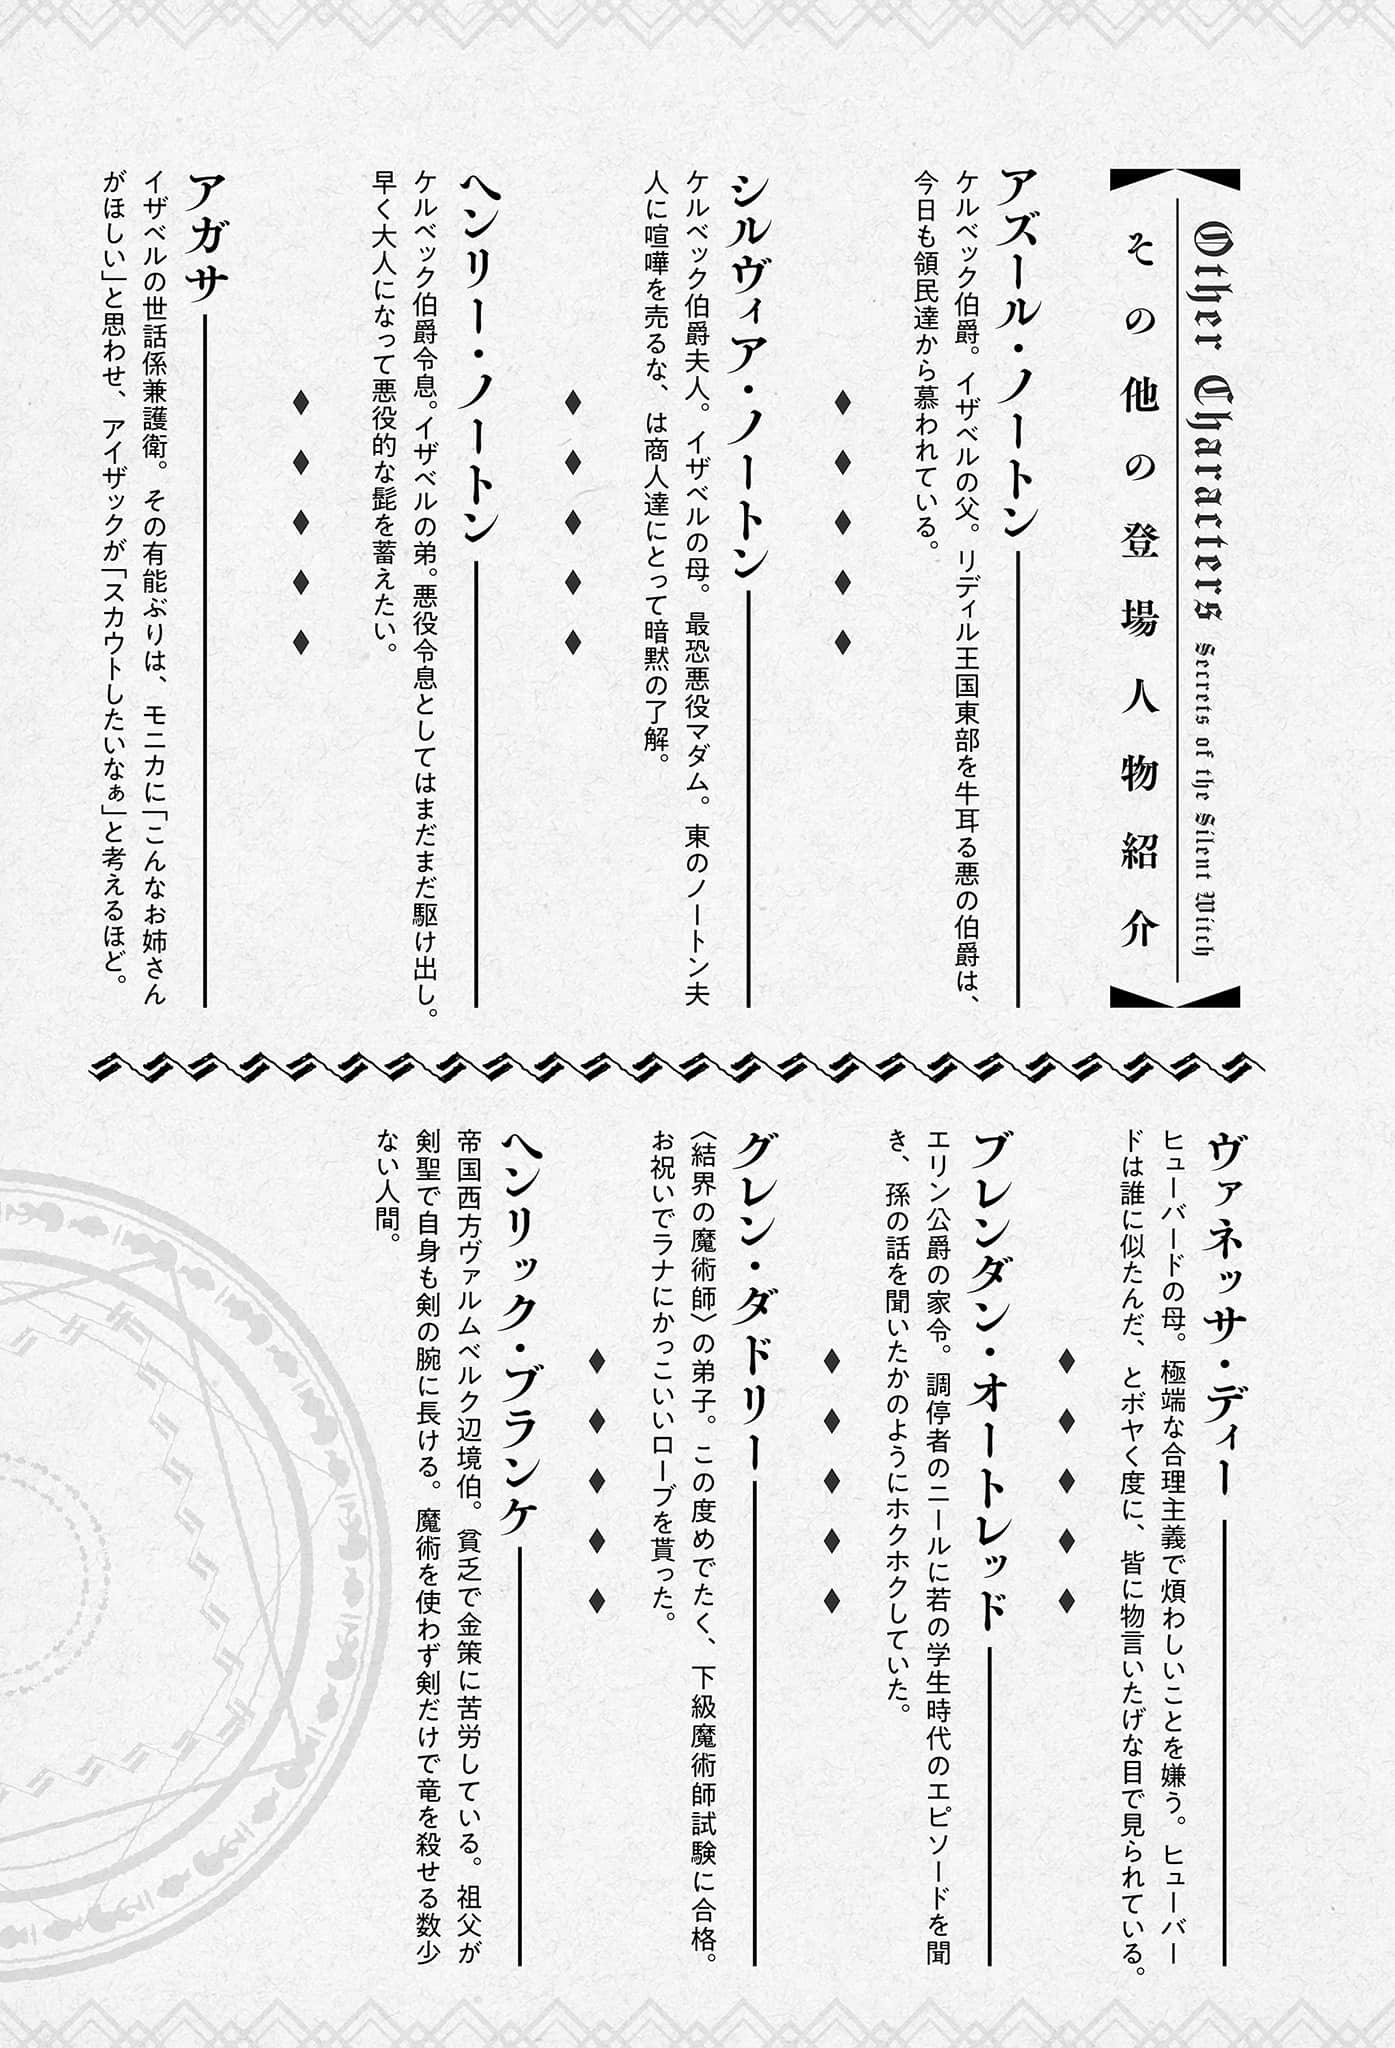 Other Characters Secrets of the Silent Witch
その他の登場人物紹介
アズール・ノートン
ケルベック伯爵。イザベルの父。リディル王国東部を牛耳る悪の伯爵は、
今日も領民達から慕われている。
シルヴィア・ノートン
ケルベック伯爵夫人。イザベルの母。最恐悪役マダム。東のノートン夫
人に喧嘩を売るな、は商人達にとって暗黙の了解。
ヘンリー・ノートン
ケルベック伯爵令息。イザベルの弟。悪役令息としてはまだまだ駆け出し。
早く大人になって悪役的な髭を蓄えたい。
アガサ
イザベルの世話係兼護衛。その有能ぶりは、モニカに「こんなお姉さん
がほしい」と思わせ、アイザックが「スカウトしたいなぁ」と考えるほど。
ヴァネッサ・ディー
ヒューバードの母。極端な合理主義で煩わしいことを嫌う。ヒューバー
ドは誰に似たんだ、とボヤく度に、皆に物言いたげな目で見られている。
ブレンダン・オートレッド
エリン公爵の家令。調停者のニールに若の学生時代のエピソードを聞
き、孫の話を聞いたかのようにホクホクしていた。
グレン・ダドリー
〈結界の魔術師〉の弟子。この度めでたく、下級魔術師試験に合格。
お祝いでラナにかっこいいローブを貰った。
ヘンリック・ブランケ
帝国西方ヴァルムベルク辺境伯。貧乏で金策に苦労している。祖父が
剣聖で自身も剣の腕に長ける。魔術を使わず剣だけで竜を殺せる数少
ない人間。